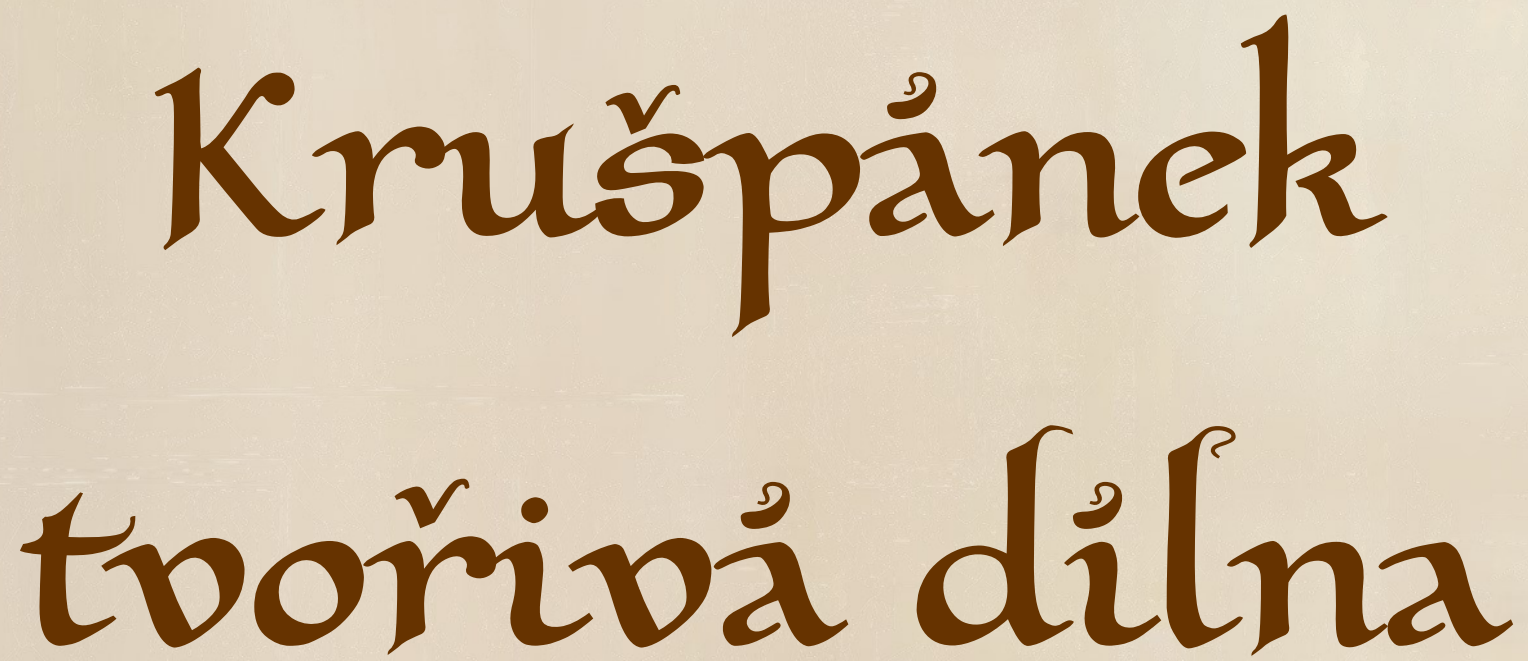 Krušpánek
tvořivá dílna